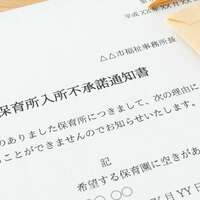 平成 XX年 XX月
△△市福祉事務所長
保育所入所不承諾通知書
のありました保育所につきまして、次の理由に
ことができませんのでお知らせいたします。
記
希望する保育園に空きがあ
○○ ○○
XX月 YY日